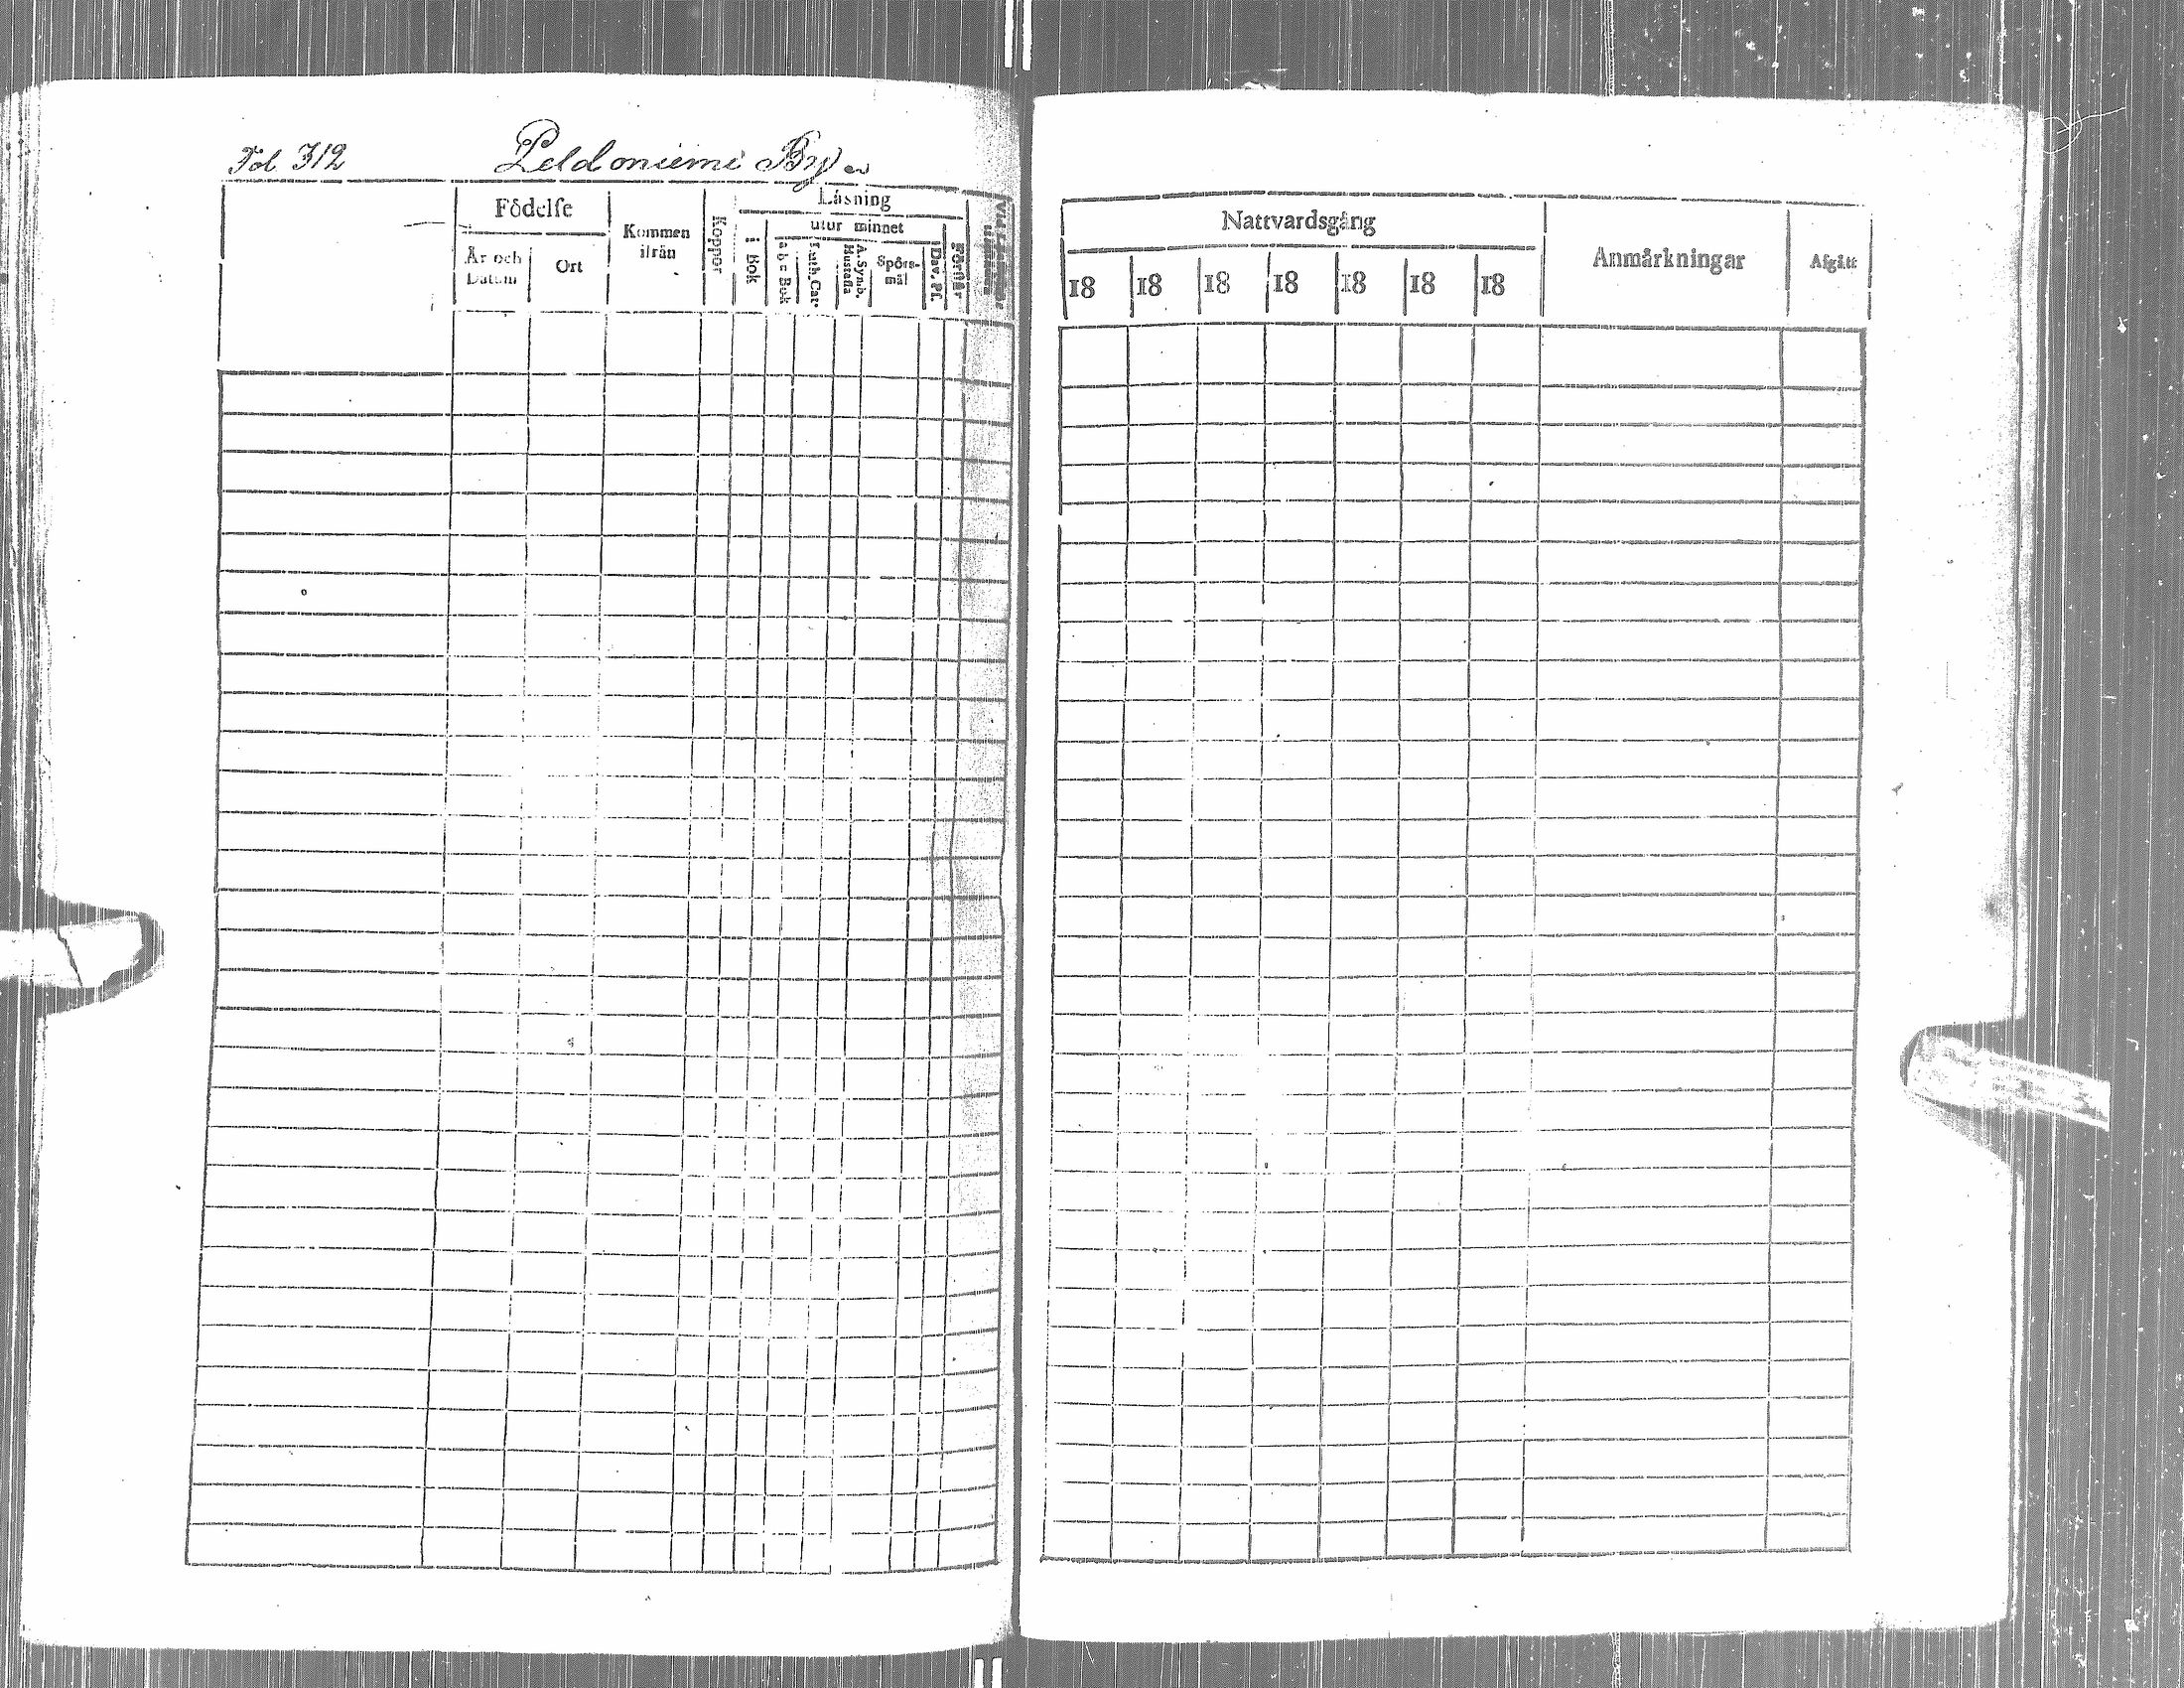 Fol. 312 Peldoniemi By
Födelse
År och Datum
Ort
Kommen ifrån
Koppor
Läsning
i Bok
utur minnet
a b c Bok
Luth. Cat.
A. Symb. Hustafla
Spörs-mål
Dav. Ps.
Förstår
Nattvardsgång
18 18 18 18 18 18 18
Anmärkningar
Afgått